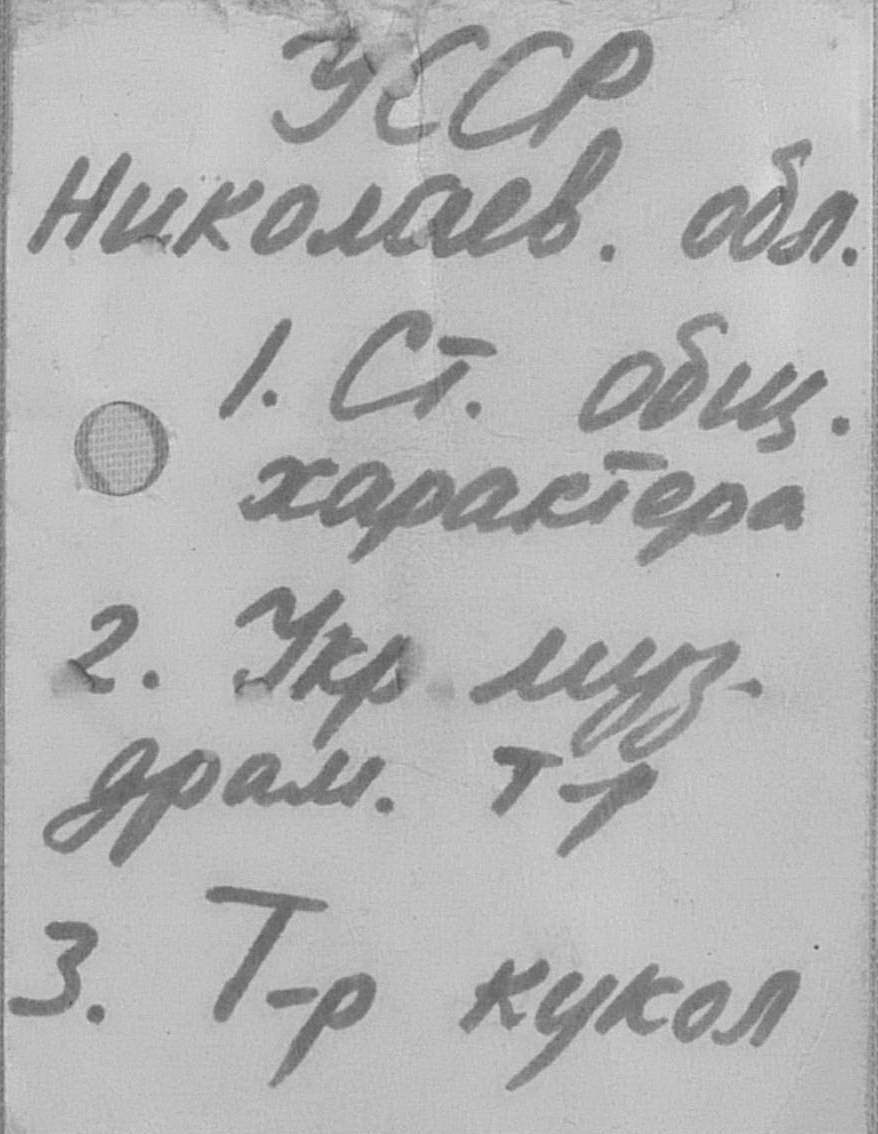 УССР
Николаев. обл.
1. Ст. общ.
характера
2. Укр. муз.
драм. т-р
3. Т-р кукол